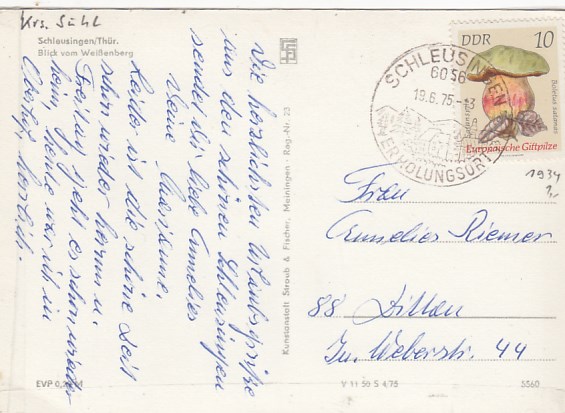 Krs. Suhl
Schleusingen/Thür.
Blick vom Weißenberg
Die herzlichsten Urlaubsgrüße
aus dem schönen Schleusingen
sendet dir liebe Annelies
deine
Leider ist die schöne Zeit
schon wieder herum u.
Freitag geht es schon wieder
heim. Heute war ich in
Oberhof, herrlich.
Kunstanstalt Straub & Fischer, Meiningen · Reg.-Nr. 23
DDR 10
Boletus satanas
Satanspilz
Europäische Giftpilze
SCHLEUSINGEN
6056
19.6.75-13
ERHOLUNGSORT
1934
Frau
Annelies Riemer
88 Zittau
Ju. Weberstr. 44
EVP 0,20 M
V 11 50 S 4/75
5560